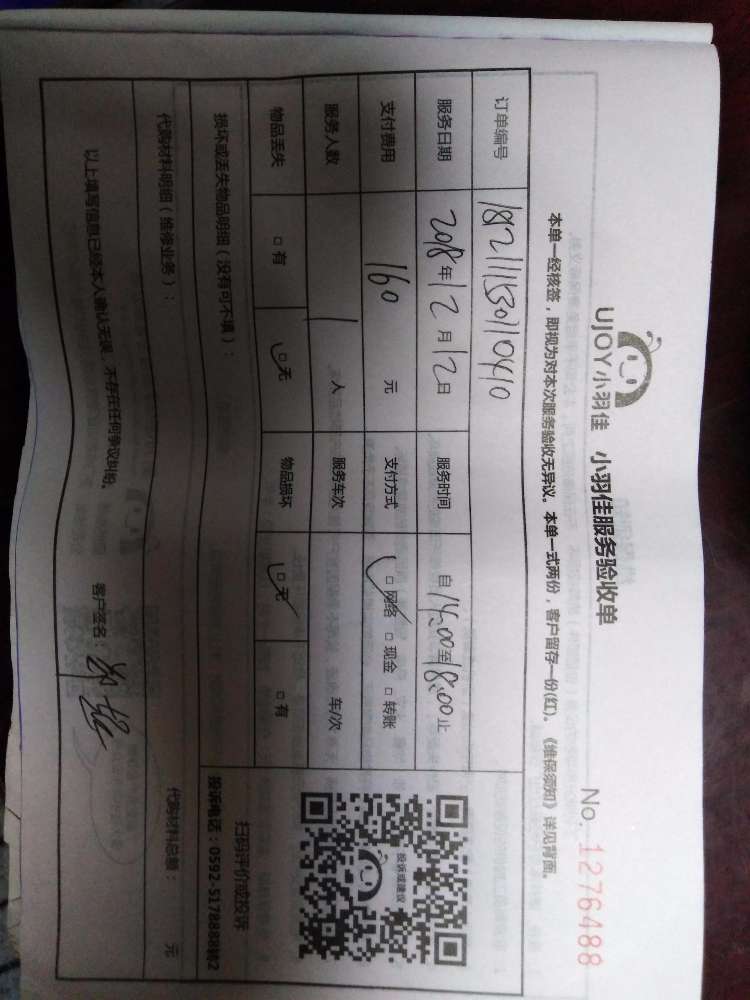 UJOY小羽佳 小羽佳服务验收单
No. 1276488
本单一经核签，即视为对本次服务验收无异议。本单一式两份，客户留存一份(红)。《维保须知》详见背面。
订单编号 182111530110410
服务日期 2018年12月12日 服务时间 自14:00至18:00止
支付费用 160 元 支付方式 □网络 □现金 □转账
服务人数 1 人 服务车次 车/次
物品丢失 □有 □无 物品损坏 □无 □有
损坏或丢失物品明细（没有可不填）：
投诉或建议
扫码评价或投诉
投诉电话：0592-5178888转2
代购材料明细（维修业务）： 代购材料总额： 元
以上填写信息已经本人确认无误，不存在任何争议纠纷。 客户签名：